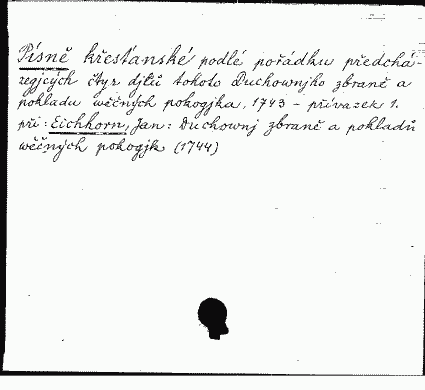 Písně křesťanské podlé pořádku předchá-
regjcých čtyr djlů tohoto Duchownjho zbraně a
pokladu wěčných pokogjka, 1743 - přívazek 1.
při: Eichhorn, Jan: Duchownj zbraně a pokladů
wěčných pokogjk (1744)